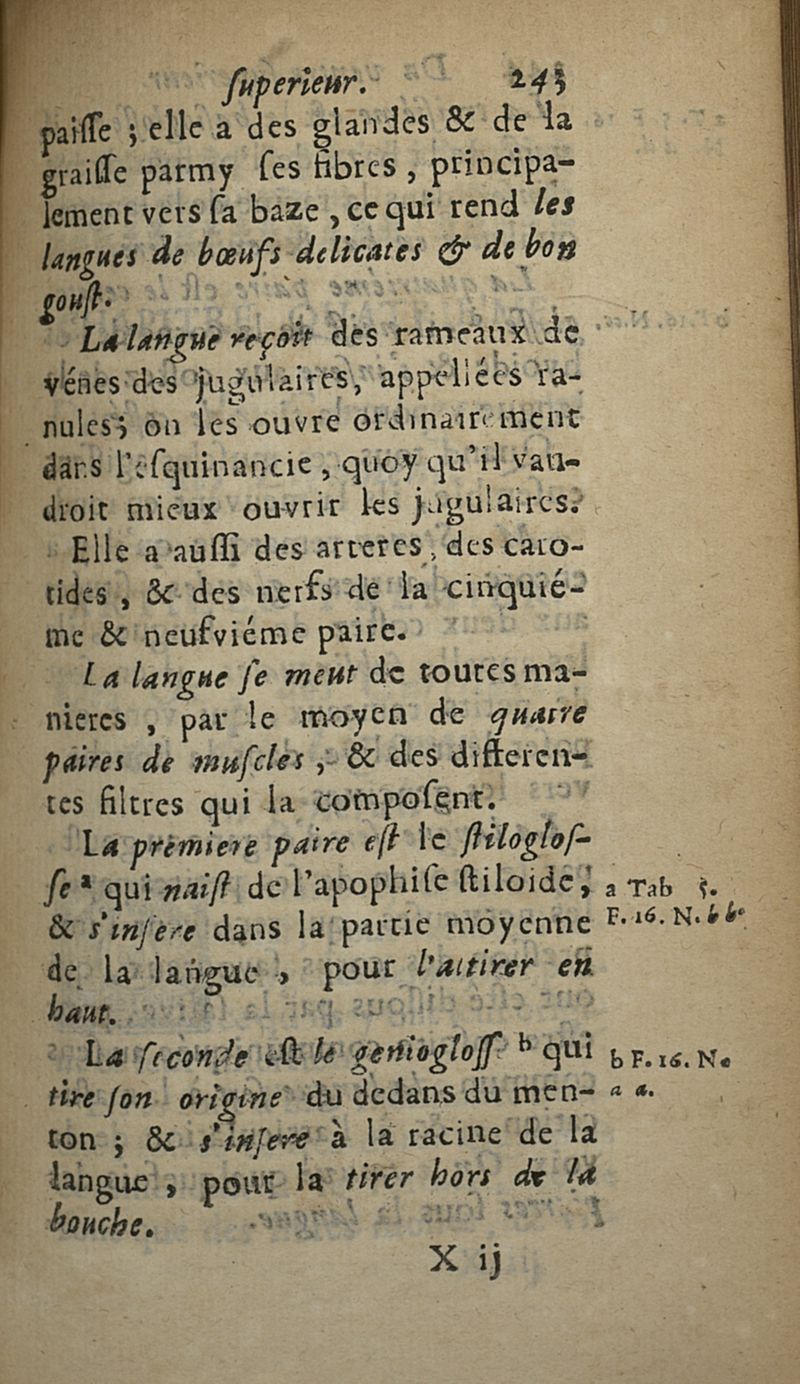 ſuperieur. 243
paiſſe ; elle a des glandes & de la
graiſſe parmy ſes fibres , principa-
lement vers ſa baze , ce qui rend les
langues de bœufs delicates & de bon
gouſt.
La langue reçoit des rameaux de
vénes des jugulaires, appellées ra-
nules ; on les ouvre ordinairement
dans l'eſquinancie , quoy qu'il vau-
droit mieux ouvrir les jugulaires.
Elle a auſſi des arteres, des caro-
tides , & des nerfs de la cinquié-
me & neufviéme paire.
La langue ſe meut de toutes ma-
nieres , par le moyen de quatre
paires de muſcles , & des differen-
tes filtres qui la compoſent.
La premiere paire eſt le ſtilogloſ-
ſe a qui naiſt de l'apophiſe ſtiloide, a Tab 5.
& s'inſere dans la partie moyenne F. 16. N. b b.
de la langue , pour l'attirer en
haut.
La ſeconde eſt le geniogloſſ b qui b F. 16. N.
tire ſon origine du dedans du men- a a.
ton ; & s'inſere à la racine de la
langue , pour la tirer hors de la
bouche.
X ij